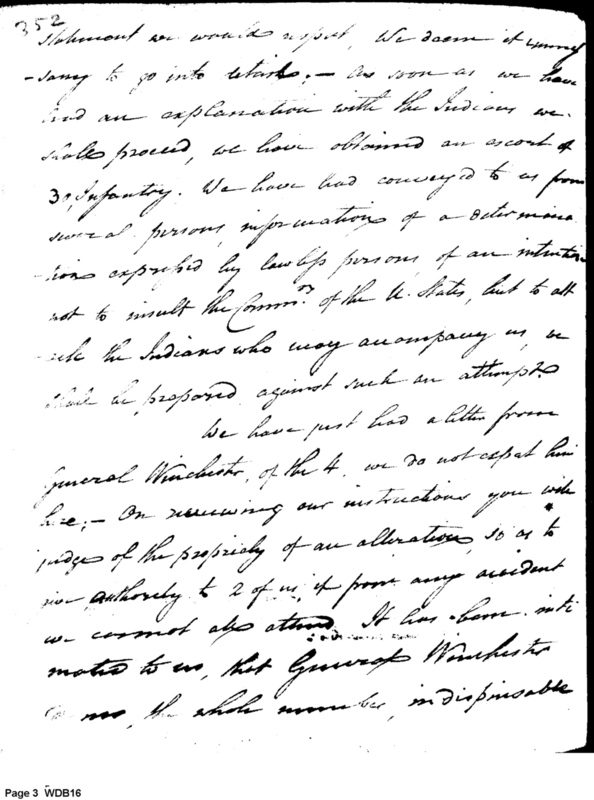 352
statement we would expect, We deem it unneces
-sary to go into details; - as soon as we have
had an explanation with the Indians we
shall proceed, we have obtained an escort of
30 Infantry. We have had conveyed to us from
several persons, information of a determina
-tion expressed by lawless persons of an intention
not to insult the Commrs. of the U. States, but to att
-ack the Indians who may accompany us, we
shall be prepared against such an attempt.
We have just had a letter from
General Winchester, of the 4, we do not expect him
here; - On reviewing our instructions you will
judge of the propriety of an alteration, so as to
give authority to 2 of us, if from any accident
we cannot all attend. It has been inti
mated to us, that General Winchester
the whole number, indispensable
Page 3 WDB16